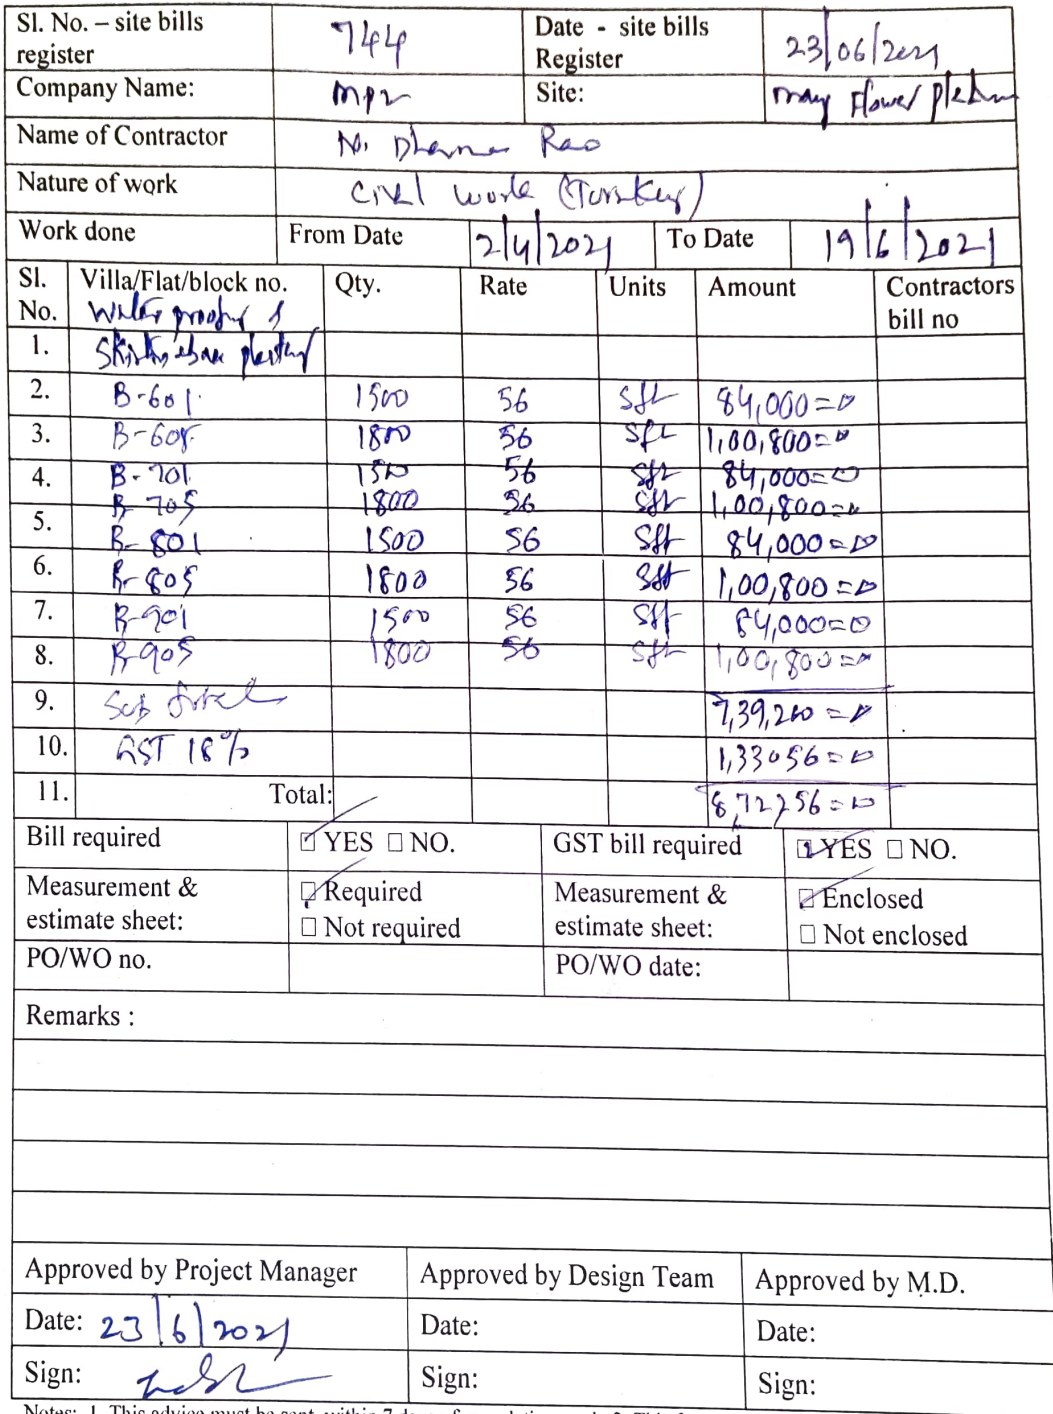 Sl. No. – site bills register 744 Date - site bills Register 23/06/2021
Company Name: MPR Site: may Flower Platinum
Name of Contractor N. Dharma Rao
Nature of work Civil work (Turnkey)
Work done From Date 2/4/2021 To Date 19/6/2021
Sl. No. Villa/Flat/block no. Qty. Rate Units Amount Contractors bill no
Water proofing &
1. plastering
2. B-601 1500 56 Sft 84,000=00
3. B-605 1800 56 Sft 1,00,800=00
4. B-701 1500 56 Sft 84,000=00
B-705 1800 56 Sft 1,00,800=00
5. B-801 1500 56 Sft 84,000=00
6. B-805 1800 56 Sft 1,00,800=00
7. B-901 1500 56 Sft 84,000=00
8. B-905 1800 56 Sft 1,00,800=00
9. Sub Total 7,39,200=00
10. GST 18% 1,33056=00
11. Total: 8,72,256=00
Bill required ☑ YES ☐ NO. GST bill required ☑ YES ☐ NO.
Measurement & estimate sheet: ☑ Required Measurement & estimate sheet: ☑ Enclosed
☐ Not required ☐ Not enclosed
PO/WO no. PO/WO date:
Remarks :
Approved by Project Manager Approved by Design Team Approved by M.D.
Date: 23/6/2021 Date: Date:
Sign: Sign: Sign: